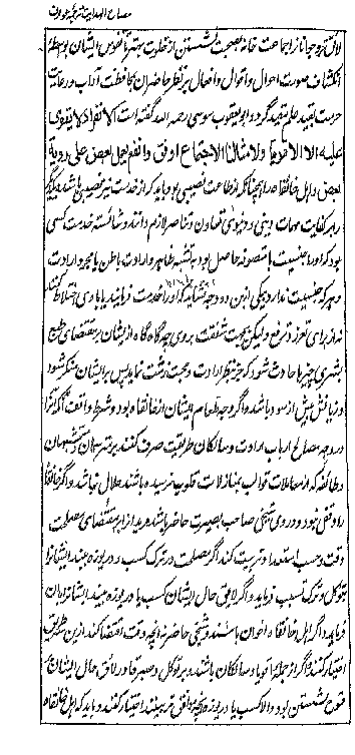 مصباح الهدایت ترجمہ عوارف
لائق‌تر و جوانانرا جماعت خانہ بصحبت نشستن از خلوت بہتر تا نفوس ایشان بواسطۂ
انکشاف صورت احوال و اقوال و افعال بر نظر حاضران بمحافظت آداب و رعایت
حرمت بقید علم مقید گردد ابویعقوب سوسی رحمہ اللہ گفتہ است الانفراد لا یقوی
علیہ الا الاقویاء ولامثالنا الاجتماع اوفق وانفع یعمل بعض علی رویة
بعض و اہل خانقاہ را ہمچنانکہ از طاعت نصیبی بود باید کہ از خدمت نیز نصیبی باشد و یکدیگر
را بر کفایت مہمات دینی و دنیوی تعاون و تناصر لازم دانند و شائستۂ خدمت کسی
بود کہ او را جنسیت با متصوفہ حاصل بود بہ تشبہ ظاہر و ارادت باطن یا بمجرد ارادت
و ہر کہ جنسیت ندارد بیکی ازین دو وجہ نشاید کہ او را خدمت فرمایند یا با وی اختلاط کنند
نہ از برای تعزز و ترفع ولیکن بجہت شفقت بر وی چہ گاہ گاہ از ایشان بر مقتضای طبع
بشری چیزہا حادث شود کہ جز بنظر ارادت و محبت زشت نماید پس بر ایشان منکر شود
و زیانش بیش از سود باشد و اگر وجہ طعام ایشان از خانقاہ بود و شرط واقف آنکہ آنرا
در وجہ مصالح ارباب ارادت و سالکان طریقت صرف کنند بر مترسمان و متشبہان
و طائفہ کہ از معاملات قوالب بمنازلات قلوب نرسیدہ باشند حلال نباشد و اگر خانقاہ
را وقفی نبود و در وی شیخی صاحب بصیرت حاضر باشد مریدانرا بر مقتضای مصلحت
وقت و حسب استعداد تربیت کند اگر مصلحت در ترک کسب و دریوزہ بیند ایشانرا
بتوکل و ترک تسبب فرماید و اگر لایق حال ایشان کسب یا دریوزہ بیند ایشانرا بدان
فرماید و اگر اہل خانقاہ اخوان باشند و شیخی حاضر نہ آنچہ وقت اقتضا کند ازین سہ طریق
اختیار کنند و اگر از جملۂ اقویا و سالکان باشند و بر توکل و صبر قادر لائق حال ایشان بر
فتوح نشستن بود والا کسب یا دریوزہ ہرچہ موافق‌تر بینند اختیار کنند و باید کہ اہل خانقاہ